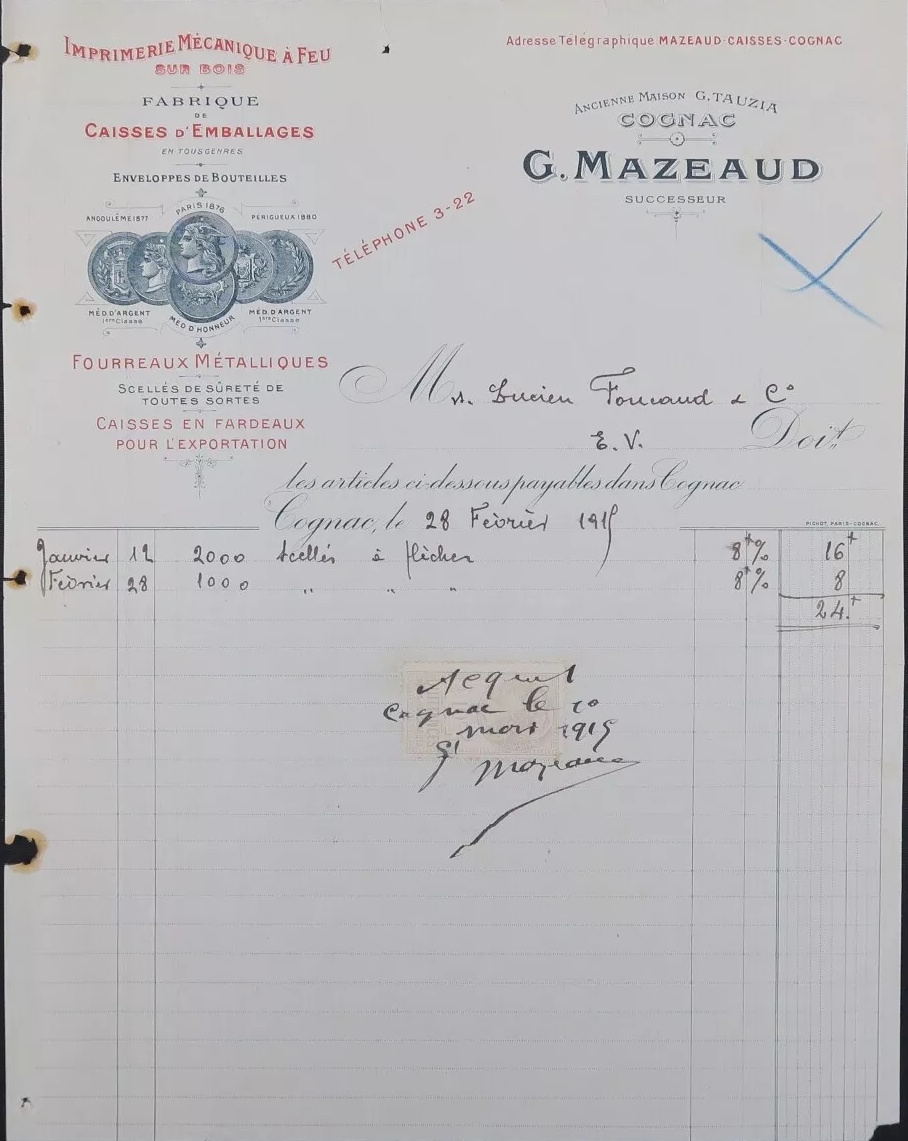 IMPRIMERIE MÉCANIQUE À FEU
SUR BOIS
FABRIQUE
DE
CAISSES D'EMBALLAGES
EN TOUS GENRES
ENVELOPPES DE BOUTEILLES
ANGOULÊME 1877
PARIS 1876
PÉRIGUEUX 1880
MÉD. D'ARGENT
1ère Classe
MÉD D'HONNEUR
MÉD. D'ARGENT
1ère Classe
FOURREAUX MÉTALLIQUES
SCELLÉS DE SÛRETÉ DE
TOUTES SORTES
CAISSES EN FARDEAUX
POUR L'EXPORTATION
TÉLÉPHONE 3-22
Adresse Télégraphique MAZEAUD-CAISSES-COGNAC
ANCIENNE MAISON G. TAUZIA
COGNAC
G. MAZEAUD
SUCCESSEUR
Mrs. Lucien Foucaud & Co
E.V. Doit
les articles ci-dessous payables dans Cognac
Cognac, le 28 Février 1915
PICHOT, PARIS-COGNAC.
Janvier 12 2000 scellés à flèches 8f % 16f
Février 28 1000 " " " 8f % 8
24.f
Acquit
Cognac le 10
mars 1915
G. Mazeaud